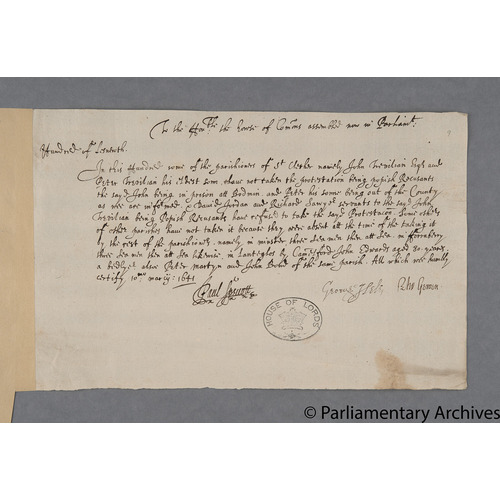 To the Hon:ble the howse of Com̃ons assembled now in Parliamt:
Hundred of Lesneuth.
In this Hundred some of the parishioners of St Clether namely John Trevilian Esqr and
Peter Trevilian his eldest sonn, have not taken the protestation being popish Recusants
the sayd John being in prison att Bodmin and Peter his sonne being out of the County
as wee are informed. David Jordan and Richard servants to the sayd John
Trevilian being Popish Recusants have refused to take the sayd Protestacon. Some others
of other parishes have not taken it because they were absent att the time of the taking it
by the rest of the parishioners, namely in minster three sea men then att sea in
three sea men then att sea likewise in Lanteglos by Camelford John Edwards aged 80 yeares
a bedlyer also Peter Martyn and John of the same parish. All which wee humbly
certify 10mo martij 1641
Paul
HOUSE OF LORDS
© Parliamentary Archives